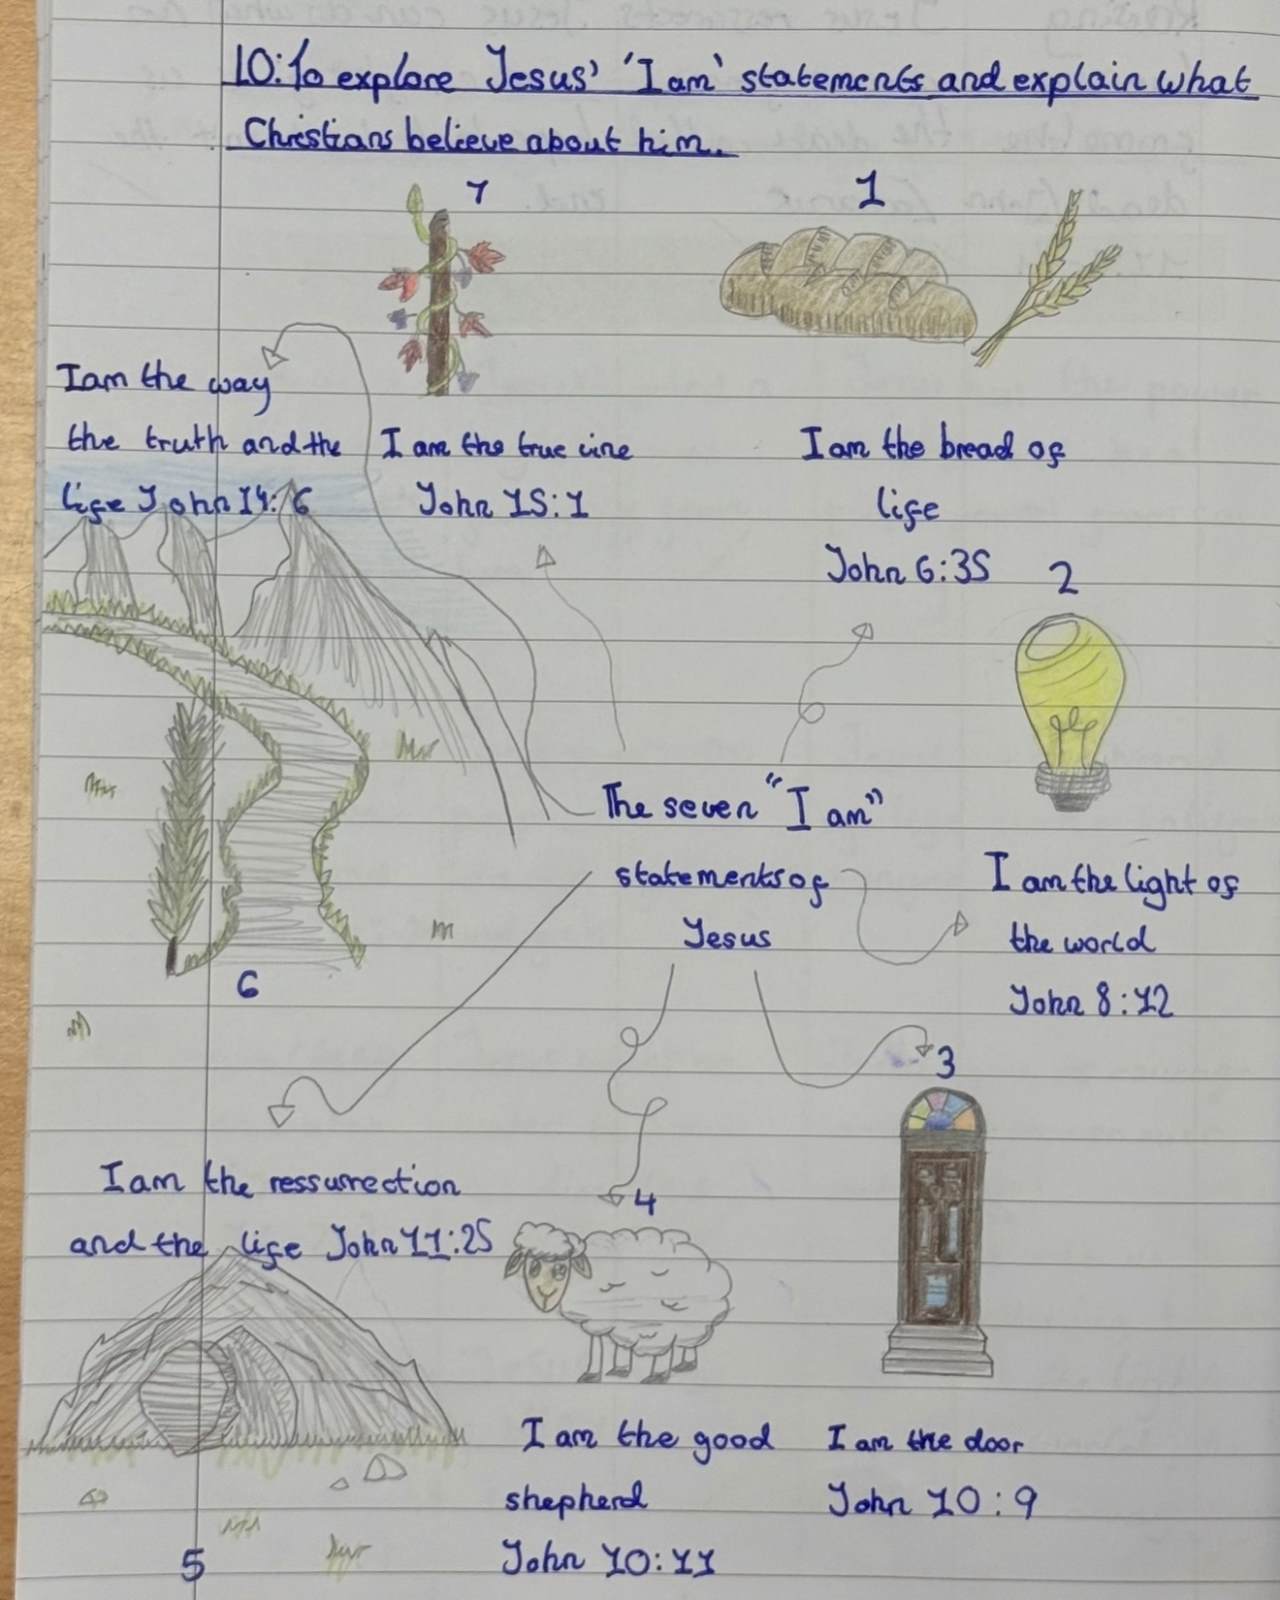 LO: To explore Jesus' 'I am' statements and explain what
Christians believe about him.
7
1
I am the way
the truth and the
life John 14:6
I am the true vine
John 15:1
I am the bread of
life
John 6:35
2
The seven "I am"
statements of
Jesus
I am the light of
the world
John 8:12
6
3
I am the ressurrection
and the life John 11:25
4
I am the good
shepherd
John 10:11
I am the door
John 10:9
5